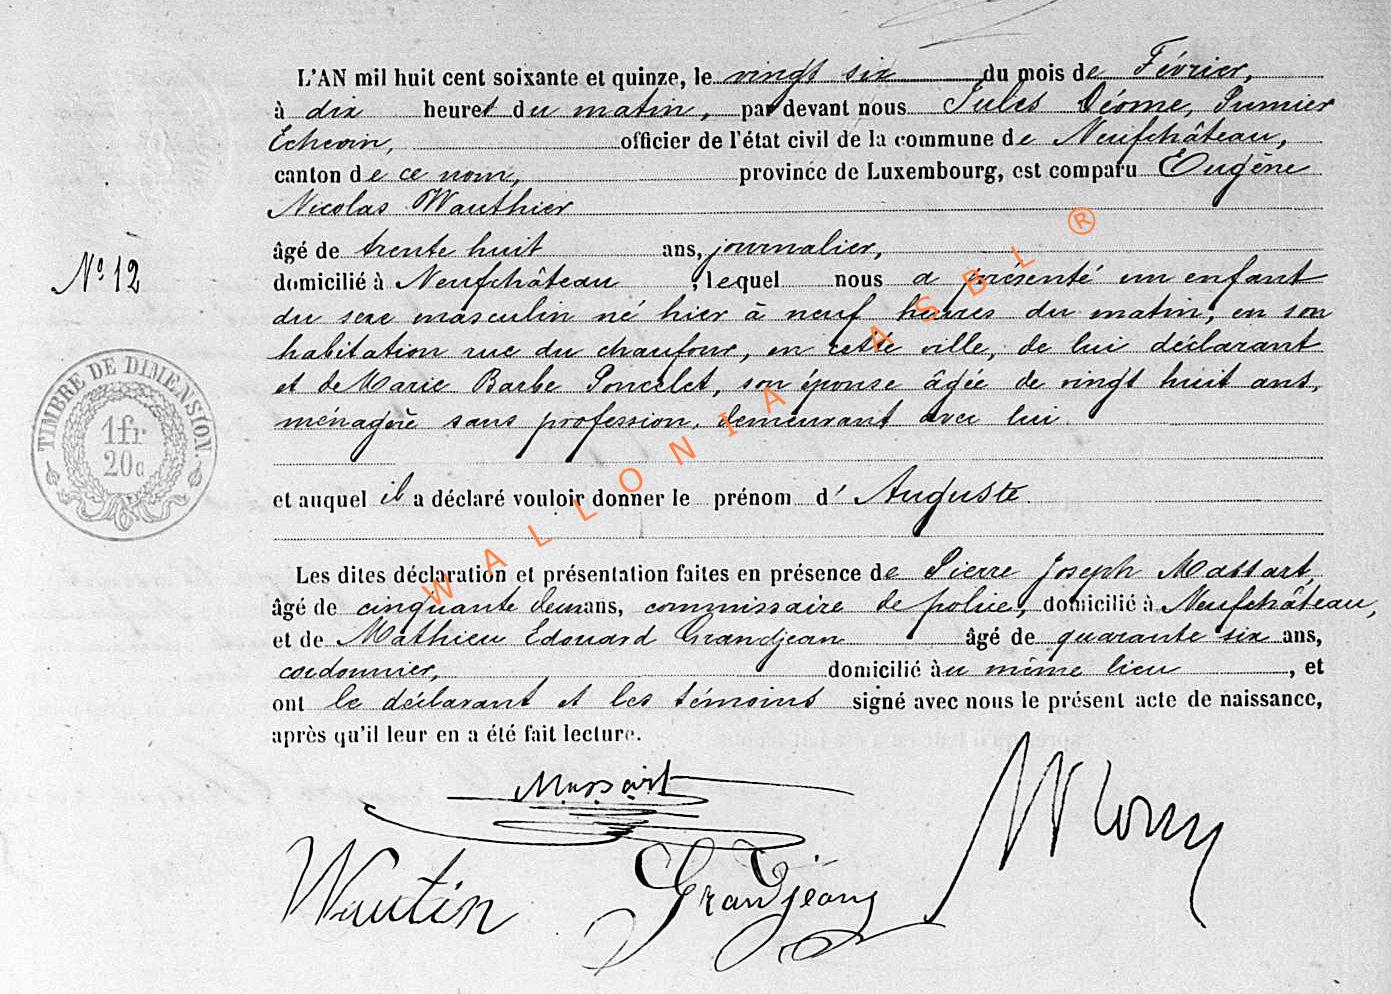 L'AN mil huit cent soixante et quinze, le vingt six du mois de Février,
à dix heures du matin, par devant nous Jules Déome, Premier
Echevin, officier de l'état civil de la commune de Neufchâteau,
canton de ce nom, province de Luxembourg, est comparu Eugène
Nicolas Wauthier
âgé de trente huit ans, journalier,
N° 12
domicilié à Neufchâteau, lequel nous a présenté un enfant
du sexe masculin né hier à neuf heures du matin, en son
habitation rue du chaufour, en cette ville, de lui déclarant
et de Marie Barbe Poncelet, son épouse âgée de vingt huit ans,
ménagère sans profession, demeurant avec lui.
TIMBRE DE DIMENSION
1fr
20c
et auquel il a déclaré vouloir donner le prénom d'Auguste.
Les dites déclaration et présentation faites en présence de Pierre Joseph Massart,
âgé de cinquante deux ans, commissaire de police, domicilié à Neufchâteau,
et de Mathieu Edouard Grandjean âgé de quarante six ans,
cordonnier, domicilié au même lieu, et
ont le déclarant et les témoins signé avec nous le présent acte de naissance,
après qu'il leur en a été fait lecture.
Massart
Wautier
Grandjean
WALLONIA ASBL ®